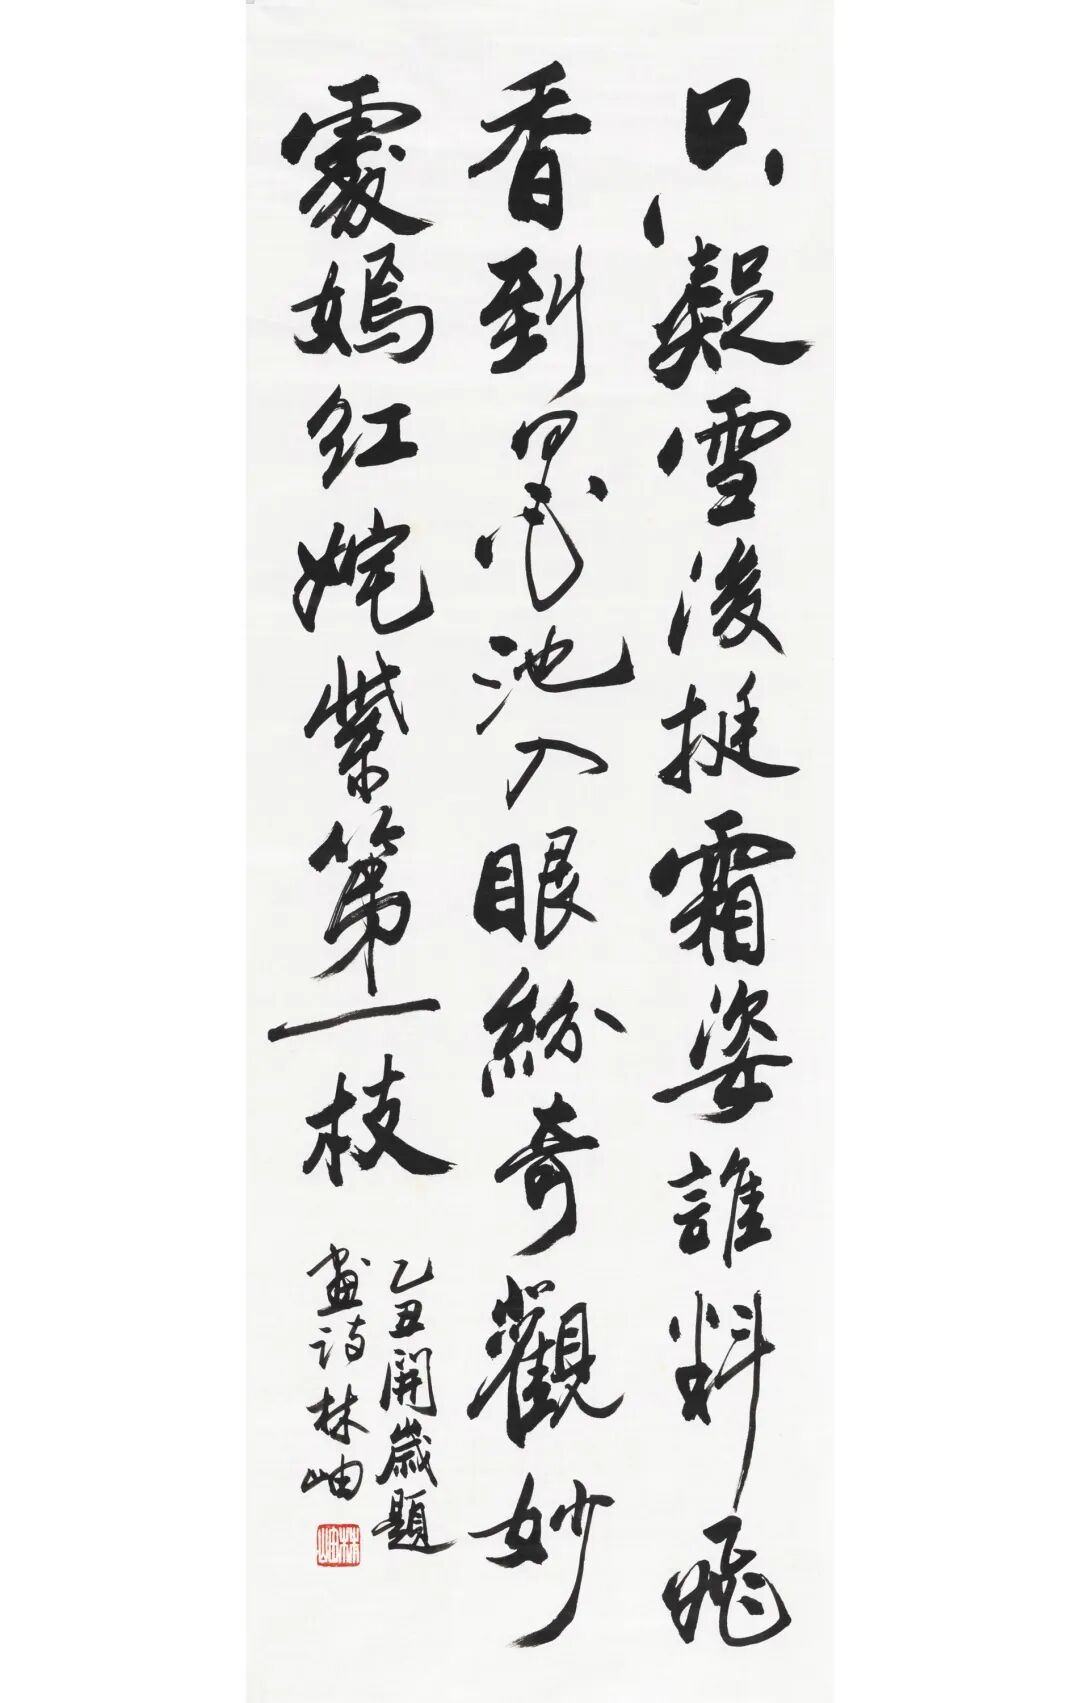 只疑雪後挺霜姿誰料飛
香到墨池入眼紛奇觀妙
處嫣紅姹紫第一枝
乙丑開歲題
畫詩林岫
林岫